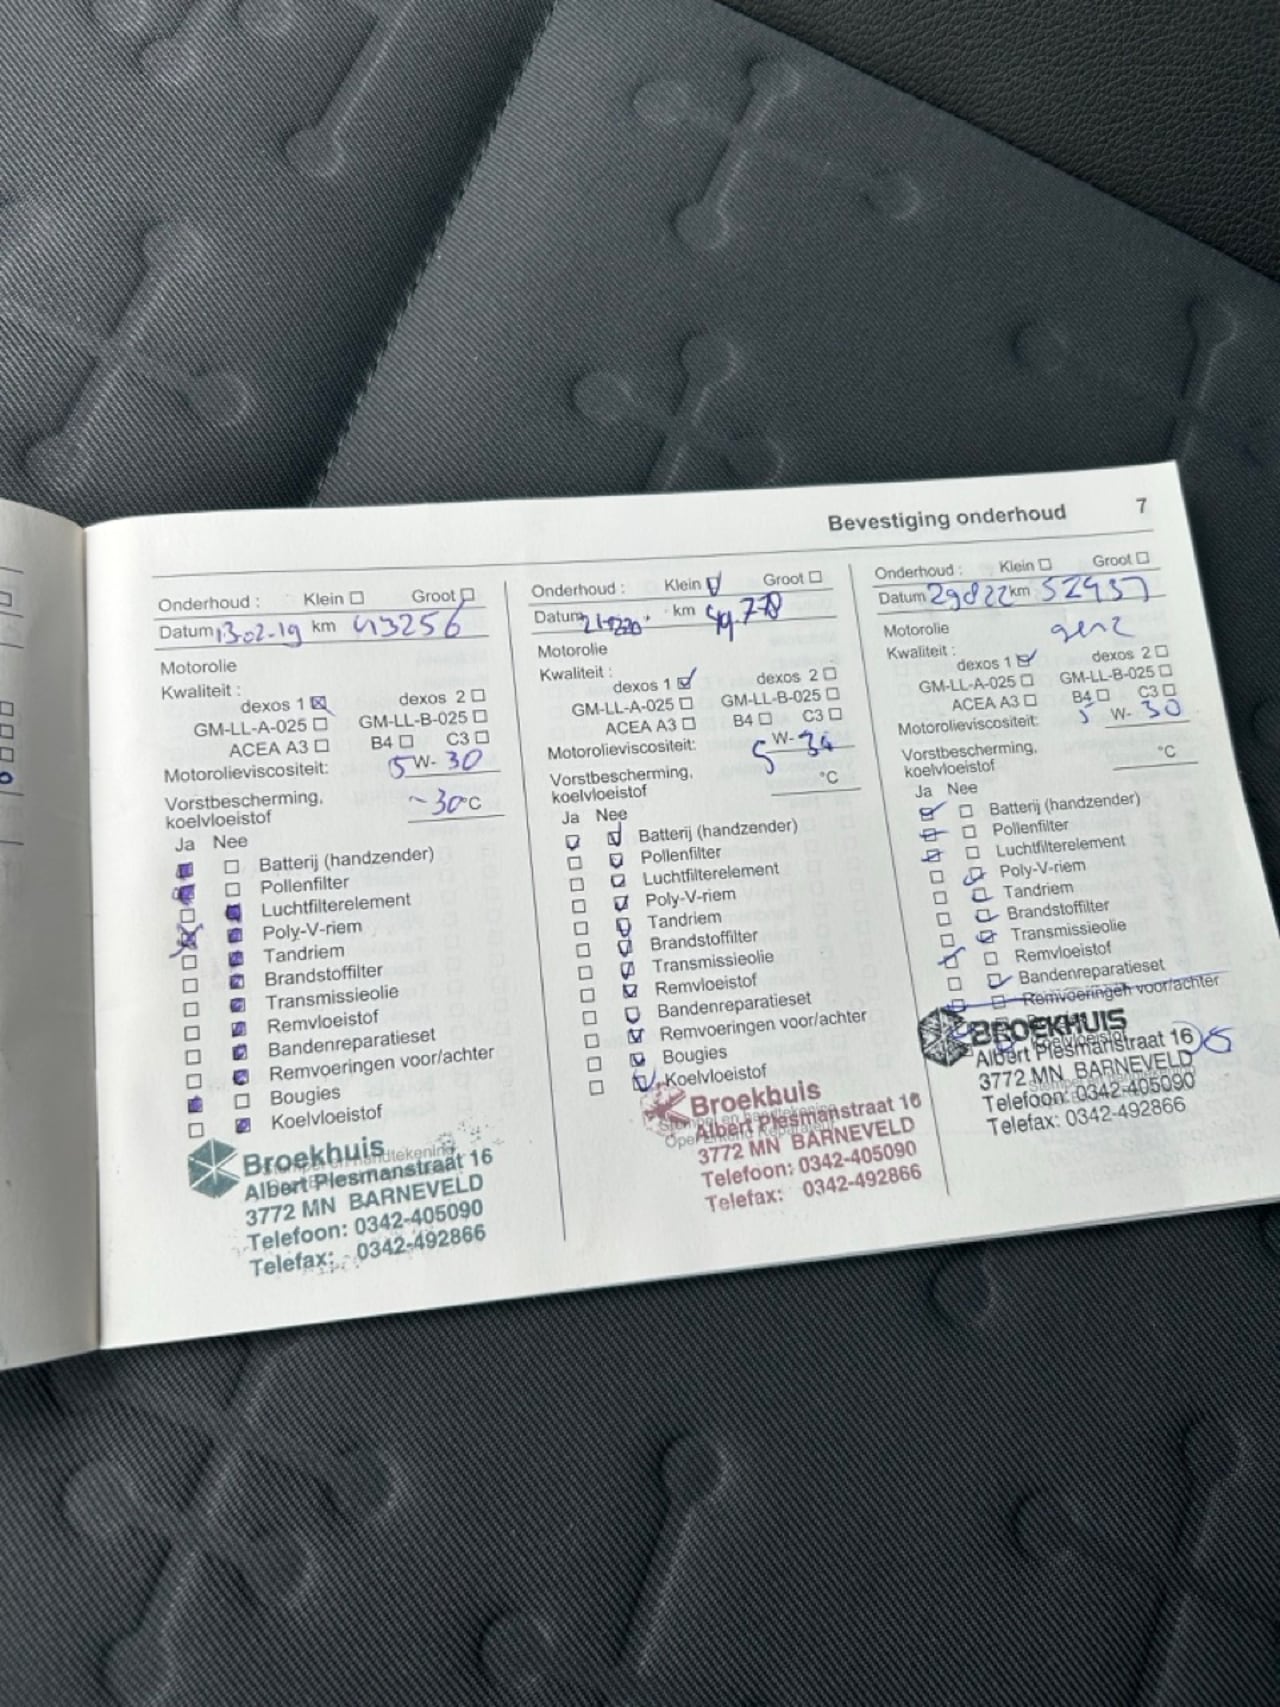 Bevestiging onderhoud 7
Onderhoud : Klein Groot
Datum 13-02-19 km 43256
Motorolie
Kwaliteit :
dexos 1 dexos 2
GM-LL-A-025 GM-LL-B-025
ACEA A3 B4 C3
Motorolieviscositeit: 5 W- 30
Vorstbescherming,
koelvloeistof ~30°C
Ja Nee
Batterij (handzender)
Pollenfilter
Luchtfilterelement
Poly-V-riem
Tandriem
Brandstoffilter
Transmissieolie
Remvloeistof
Bandenreparatieset
Remvoeringen voor/achter
Bougies
Koelvloeistof
Broekhuis
Albert Plesmanstraat 16
3772 MN BARNEVELD
Telefoon: 0342-405090
Telefax: 0342-492866
Onderhoud : Klein Groot
Datum km
Motorolie
Kwaliteit :
dexos 1 dexos 2
GM-LL-A-025 GM-LL-B-025
ACEA A3 B4 C3
Motorolieviscositeit: 5 W-
Vorstbescherming,
koelvloeistof °C
Ja Nee
Batterij (handzender)
Pollenfilter
Luchtfilterelement
Poly-V-riem
Tandriem
Brandstoffilter
Transmissieolie
Remvloeistof
Bandenreparatieset
Remvoeringen voor/achter
Bougies
Koelvloeistof
Broekhuis
Albert Plesmanstraat 16
3772 MN BARNEVELD
Telefoon: 0342-405090
Telefax: 0342-492866
Onderhoud : Klein Groot
Datum 290822 km 52937
Motorolie
Kwaliteit :
dexos 1 dexos 2
GM-LL-A-025 GM-LL-B-025
ACEA A3 B4 C3
Motorolieviscositeit: 5 W- 30
Vorstbescherming,
koelvloeistof °C
Ja Nee
Batterij (handzender)
Pollenfilter
Luchtfilterelement
Poly-V-riem
Tandriem
Brandstoffilter
Transmissieolie
Remvloeistof
Bandenreparatieset
Remvoeringen voor/achter
Koelvloeistof
BROEKHUIS
Albert Plesmanstraat 16
3772 MN BARNEVELD
Telefoon: 0342-405090
Telefax: 0342-492866